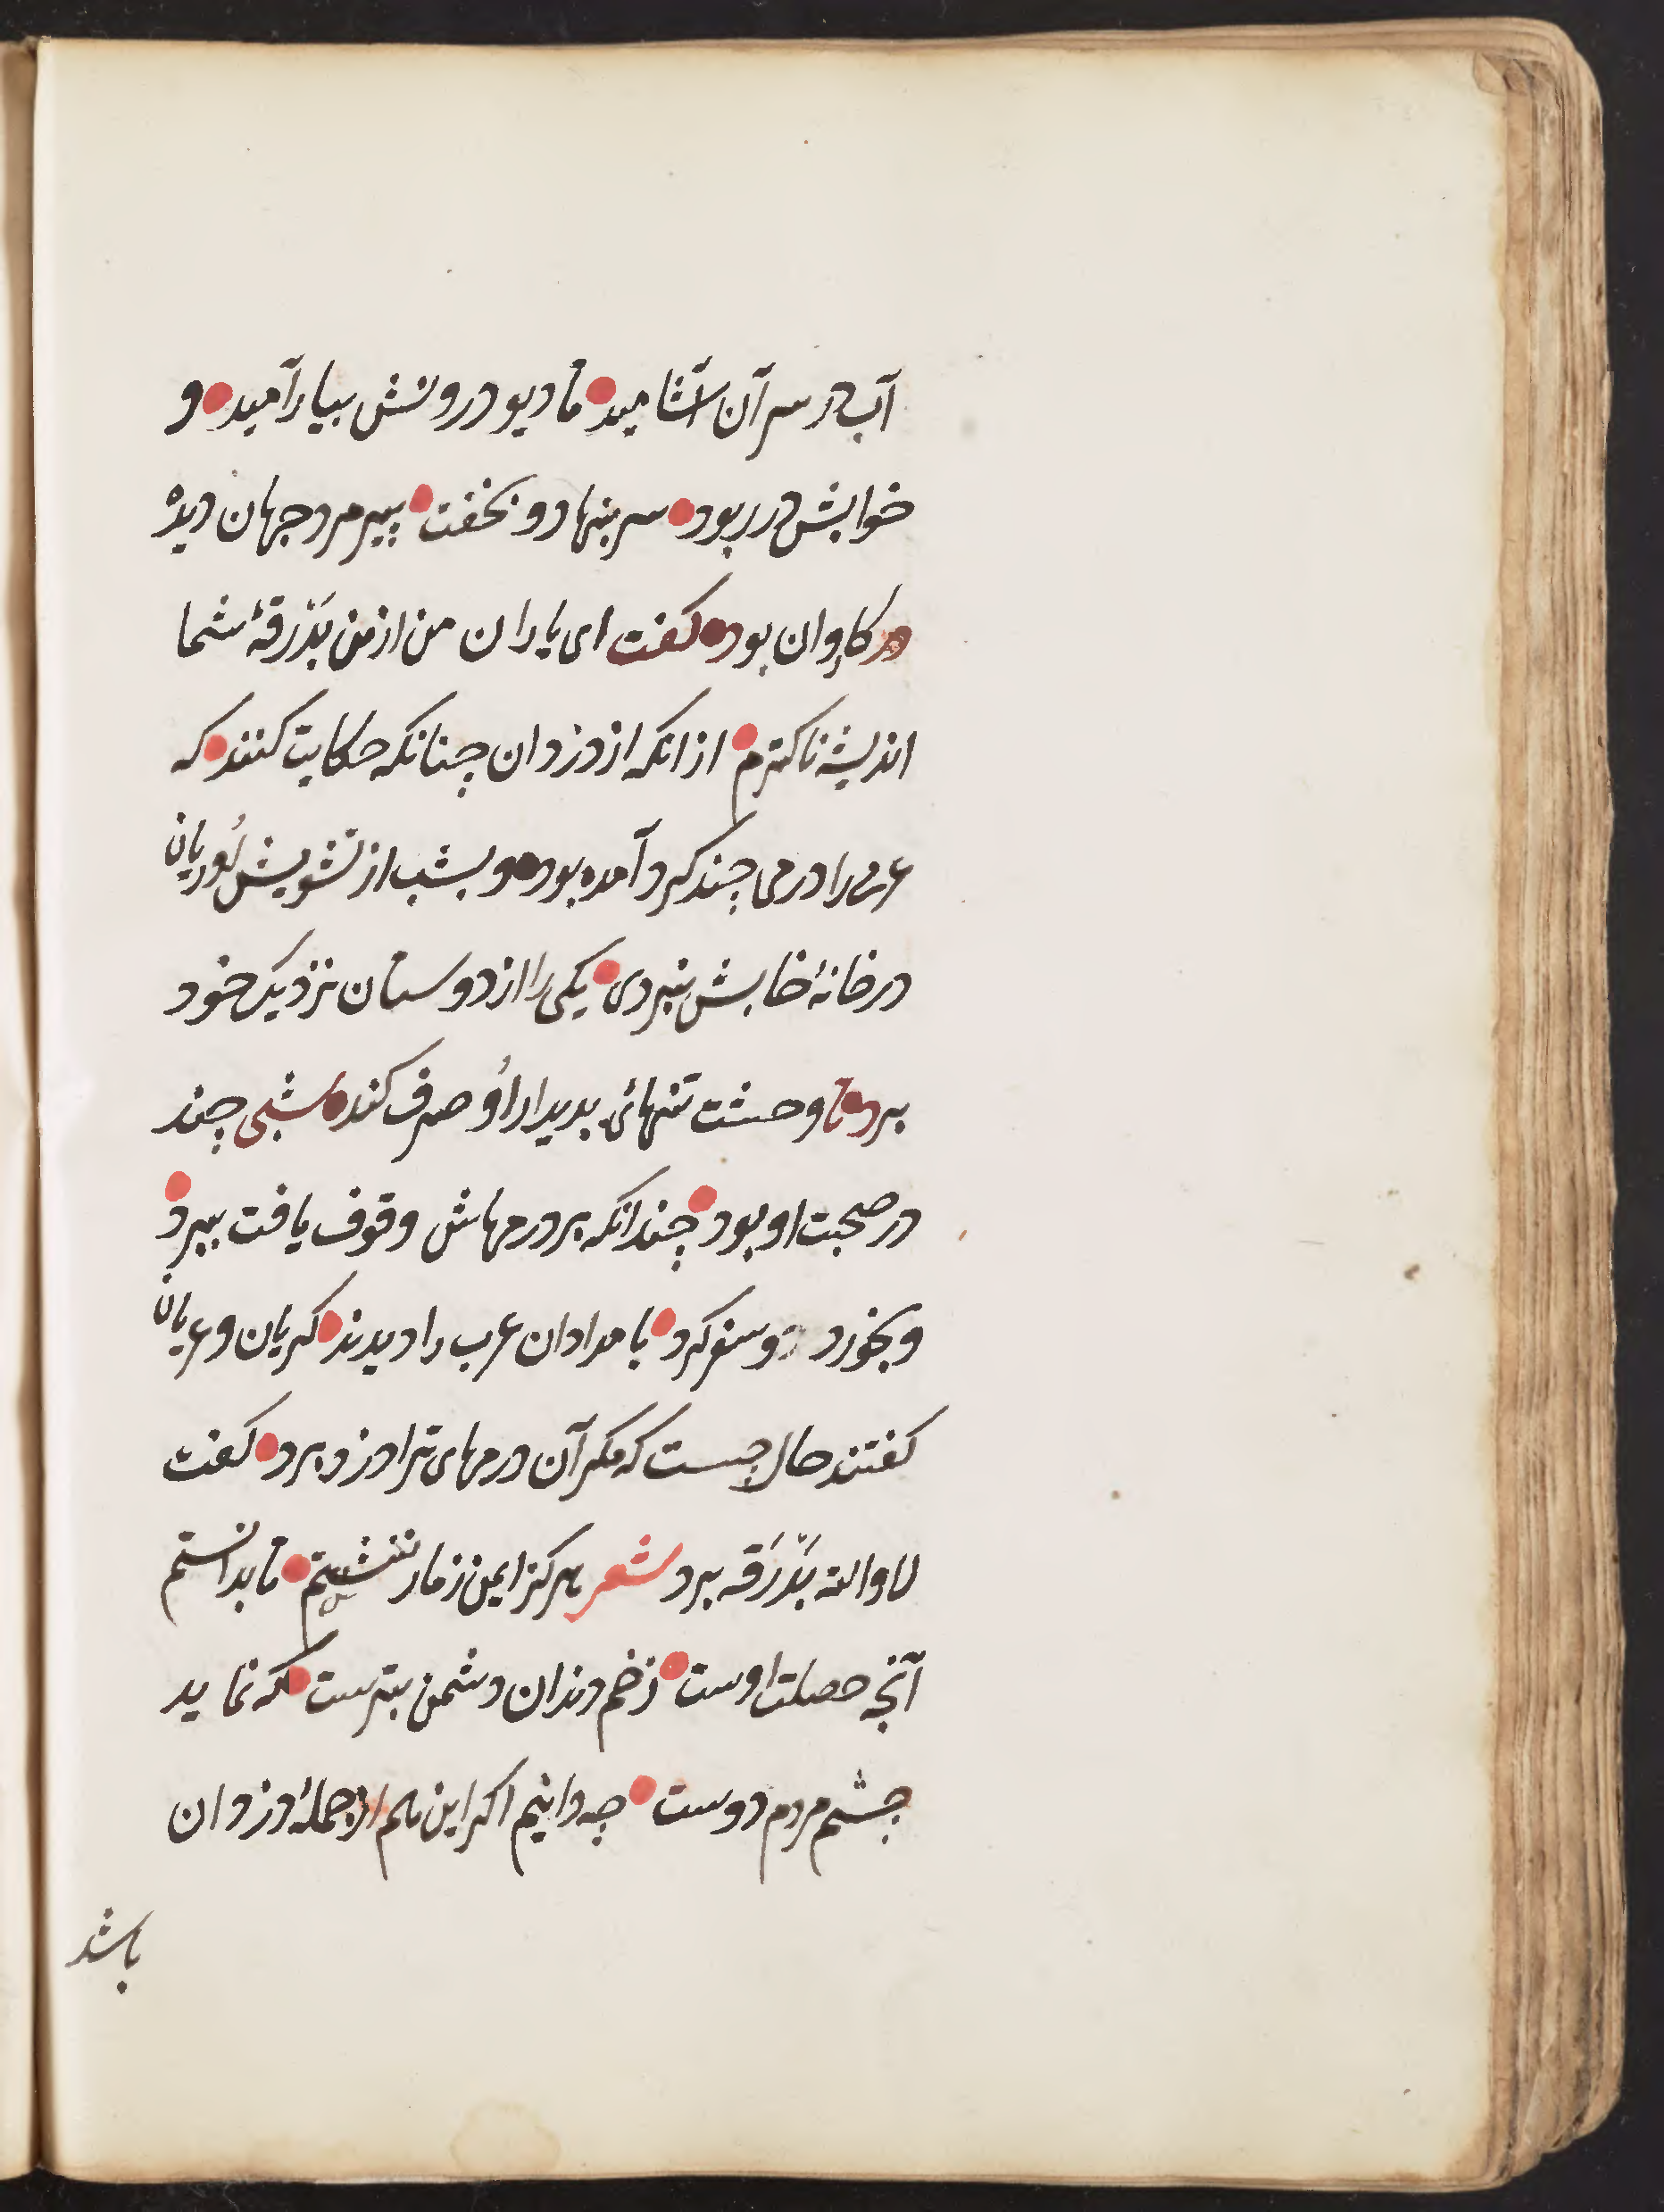 آب در سر آن آشامید تا دیو درونش بیارامید و
خوابش در ربود سر بنهاد و بخفت پیرمرد جهان دیده
در کاروان بود گفت ای یاران من ازین بَدْرَقهٔ شما
اندیشه ناکترم از انکه از دزدان چنانکه حکایت کنند که
عربی را درمی چند کرد آمده بود و بشب از تشویش لُوریان
در خانهٔ خابش نبردی یکی را از دوستان نزدیک خود
برد تا وحشت تنهائی بدیدار اُو صرف کند شبی چند
در صحبت او بود چندانکه بر درمهاش وقوف یافت ببرد
و بخورد و سفر کرد بامدادان عرب را دیدند کریان و عریان
کفتند حال چیست که مکر آن درمهای ترا دزد برد کفت
لا والله بَدْرَقه برد شعر هرکز ایمن ز مار ننشستم تا بدانستم
آنچه خصلت اوست زخم دندان دشمن بترست که نماید
چشم مردم دوست چه دانیم اکر این هم از جملهٔ دزدان
باشد